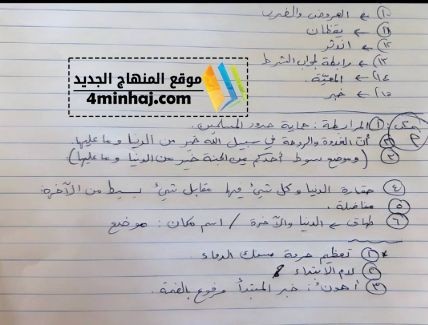 ١٠) ← العروض والضرب
١١) ← يقظان
١٢) ← الأثر
١٣) ← رابطة لجواب الشرط
١٤) ← المعيّة
١٥) ← خبر
موقع المنهاج الجديد
4minhaj.com
① المرابطة : حماية حدور المسلمين.
② أنّ الغدوة والروحة في سبيل الله خير من الدنيا وما عليها.
③ (وموضع سوط أحدكم من الجنة خير من الدنيا وما عليها)
④ حقارة الدنيا وكل شيء فيها مقابل شيء بسيط من الآخرة.
⑤ مفاضلة.
⑥ طباق ← الدنيا والآخرة / اسم مكان : موضع
① تعظيم حرمة سفك الدماء.
② لام الابتداء
③ أهونُ : خبر المبتدأ مرفوع بالضمة.